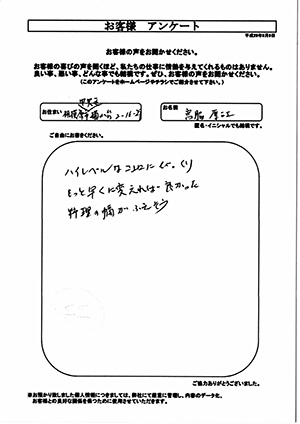 お客様 アンケート
平成26年8月9日
お客様の声をお聞かせください。
お客様の喜びの声を聞くほど、私たちの仕事に情熱を与えてくれるものはありません。
良い事、悪い事、どんな事でも結構です。ぜひ、お客様の声をお聞かせください。
(このアンケートをホームページやチラシでご紹介させて下さい。)
お住まい
お名前
匿名・イニシャルでも結構です。
ご自由にお書きください。
ハイレベルなコンロにビックリ
もっと早くに変えれば良かった
料理の幅がふえそう
ご協力ありがとうございました。
※お預かり致しました個人情報につきましては、弊社にて厳重に管理し、内容のデータ化、
お客様との良好な関係を保つために使用させていただきます。